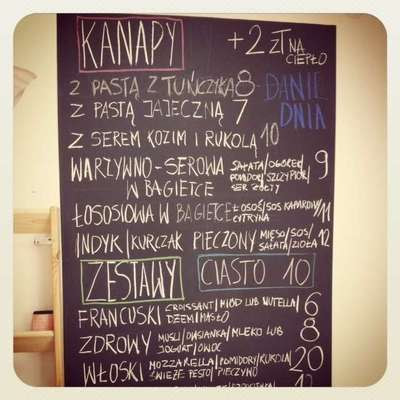 KANAPY
+2 ZŁ NA CIEPŁO
Z PASTĄ Z TUŃCZYKA 8
DANIE DNIA
Z PASTĄ JAJECZNĄ 7
Z SEREM KOZIM I RUKOLĄ 10
WARZYWNO-SEROWA W BAGIETCE SAŁATA/OGÓREK/POMIDOR/SZCZYPIOR/SER ŻÓŁTY 9
ŁOSOSIOWA W BAGIETCE ŁOSOŚ/SOS KAPAROWY/CYTRYNA 11
INDYK/KURCZAK PIECZONY MIĘSO/SOS/SAŁATA/ZIOŁA 12
ZESTAWY
CIASTO 10
FRANCUSKI CROISSANT/MIÓD LUB NUTELLA/DŻEM/MASŁO 6
ZDROWY MUSLI/OWSIANKA/MLEKO LUB JOGURT/OWOC 8
WŁOSKI MOZZARELLA/POMIDORY/RUKOLA/ŚWIEŻE PESTO/PIECZYWO 20